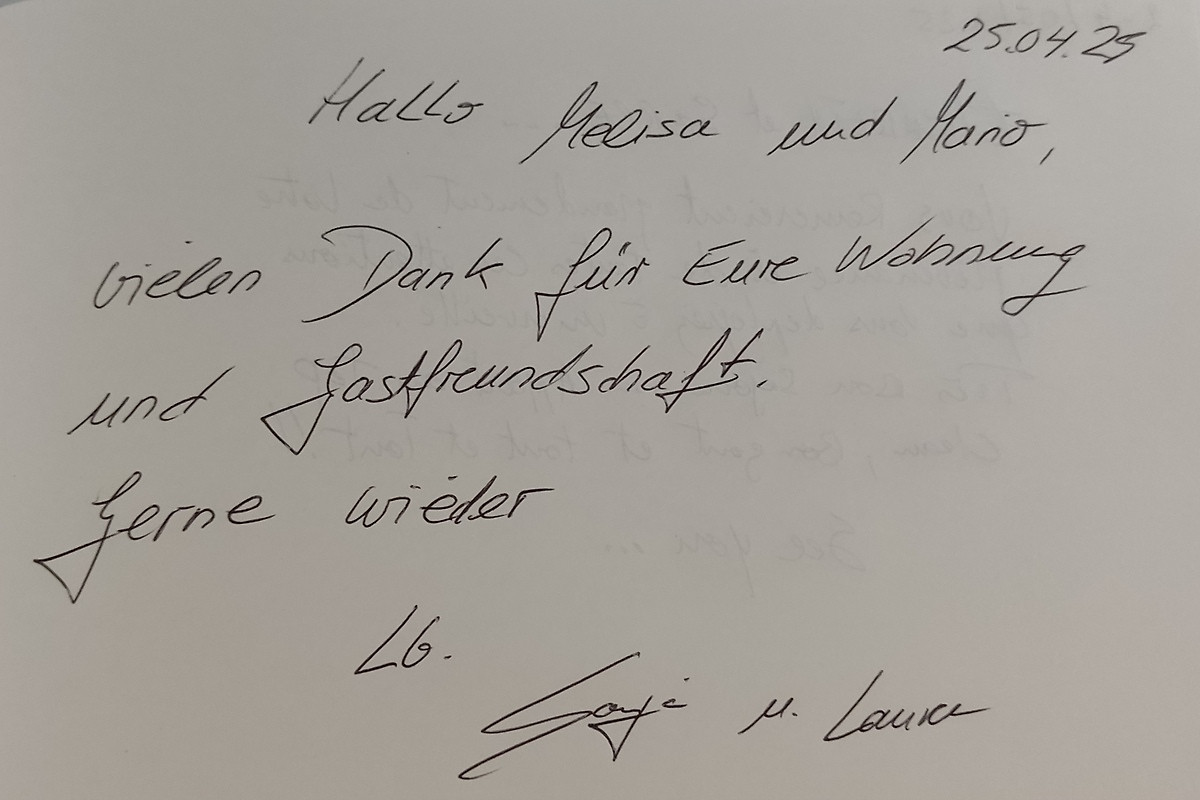 25.04.25
Hallo Melisa und Mario,
vielen Dank für Eure Wohnung
und Gastfreundschaft.
Gerne wieder
LG.
Sonja u. Laura